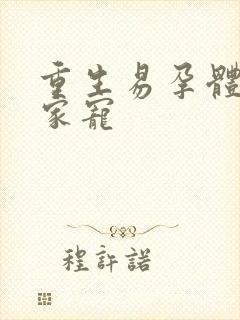 重生易孕體
家寵
程許諾